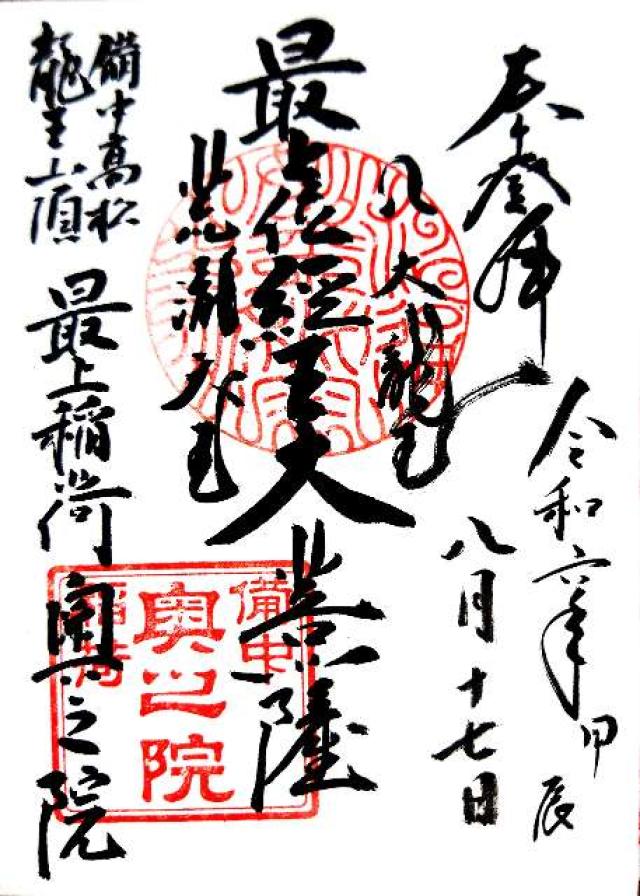 奉登拝
令和六年甲辰
八月十七日
八大龍王
最上位經王大菩薩
備中高松
龍王山頂
最上稲荷奥之院
備中
奥之院
稲荷